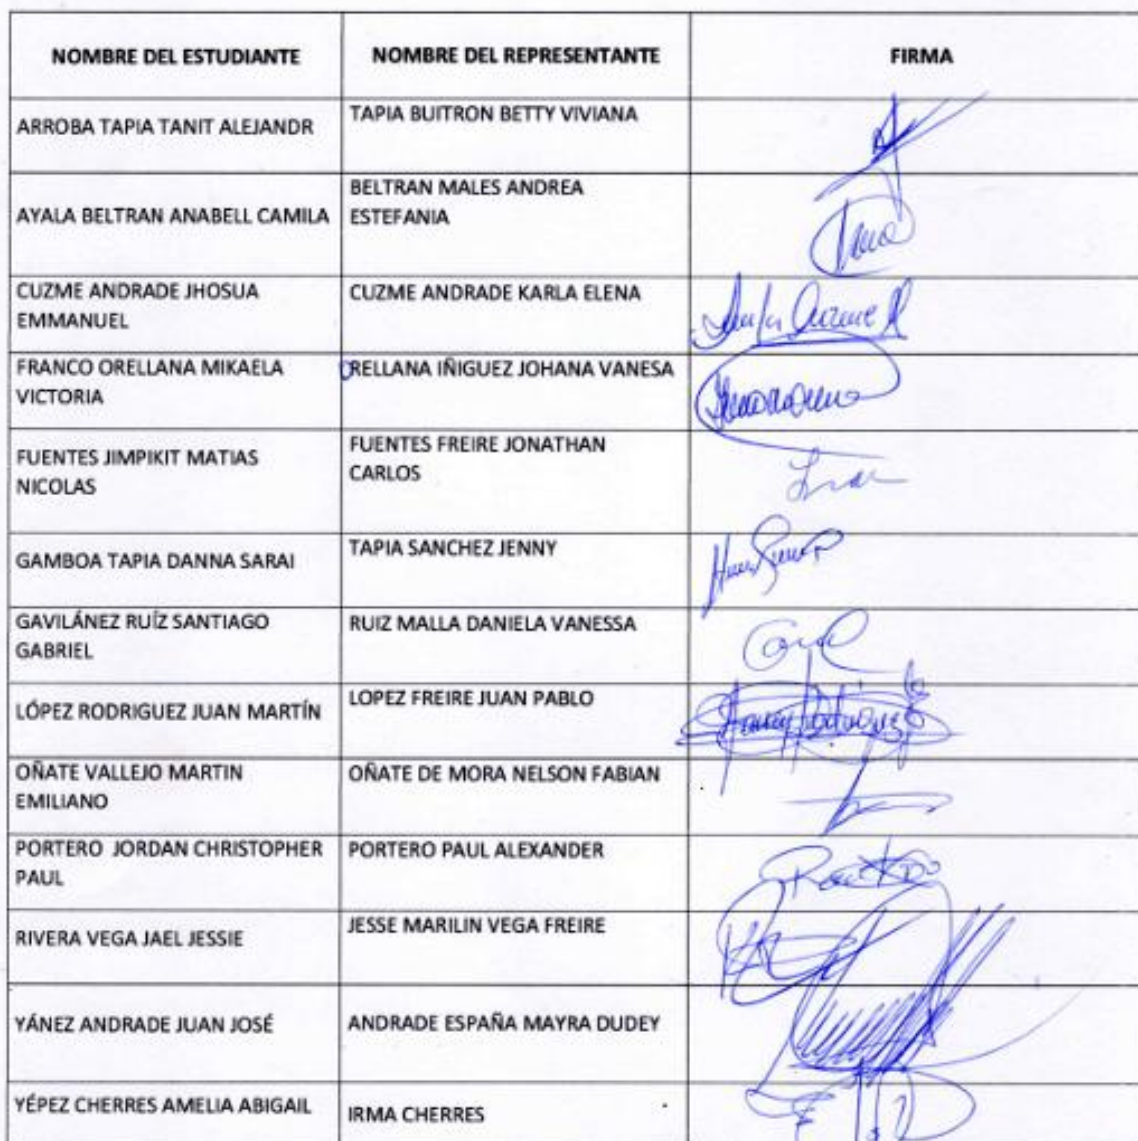 NOMBRE DEL ESTUDIANTE NOMBRE DEL REPRESENTANTE FIRMA
ARROBA TAPIA TANIT ALEJANDR TAPIA BUITRON BETTY VIVIANA
AYALA BELTRAN ANABELL CAMILA BELTRAN MALES ANDREA
ESTEFANIA
CUZME ANDRADE JHOSUA CUZME ANDRADE KARLA ELENA
EMMANUEL
FRANCO ORELLANA MIKAELA ORELLANA IÑIGUEZ JOHANA VANESA
VICTORIA
FUENTES JIMPIKIT MATIAS FUENTES FREIRE JONATHAN
NICOLAS CARLOS
GAMBOA TAPIA DANNA SARAI TAPIA SANCHEZ JENNY
GAVILÁNEZ RUÍZ SANTIAGO RUIZ MALLA DANIELA VANESSA
GABRIEL
LÓPEZ RODRIGUEZ JUAN MARTÍN LOPEZ FREIRE JUAN PABLO
OÑATE VALLEJO MARTIN OÑATE DE MORA NELSON FABIAN
EMILIANO
PORTERO JORDAN CHRISTOPHER PORTERO PAUL ALEXANDER
PAUL
RIVERA VEGA JAEL JESSIE JESSE MARILIN VEGA FREIRE
YÁNEZ ANDRADE JUAN JOSÉ ANDRADE ESPAÑA MAYRA DUDEY
YÉPEZ CHERRES AMELIA ABIGAIL IRMA CHERRES